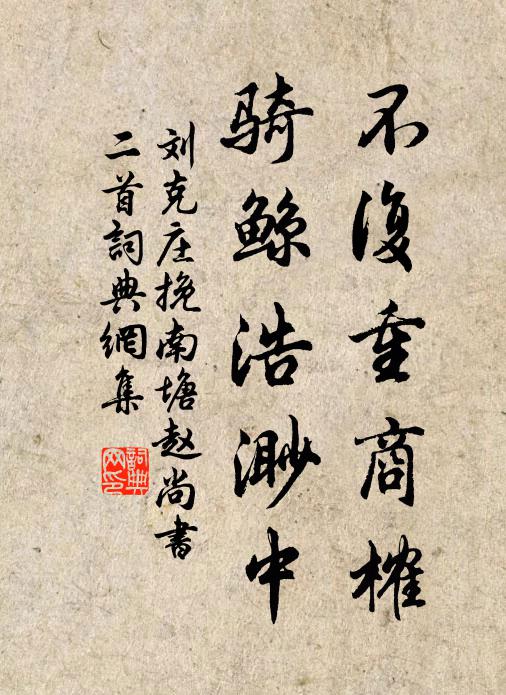 不復重商榷
騎鲸浩渺中
刘克庄挽南塘赵尚書
二首詞典網集
詞典
网印